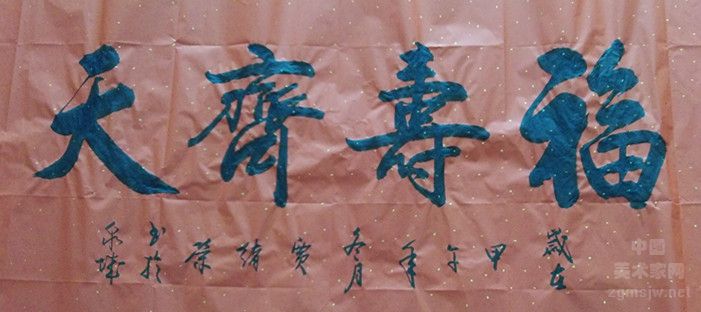 福壽齊天
歲在甲午年冬月榮书於泉城
中国
美术家网
zgmsjw.net